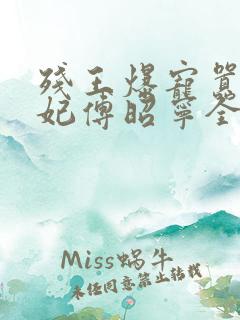 残王爆宠嚣
妃傅昭宁全
Miss蜗牛
未经同意禁止转载